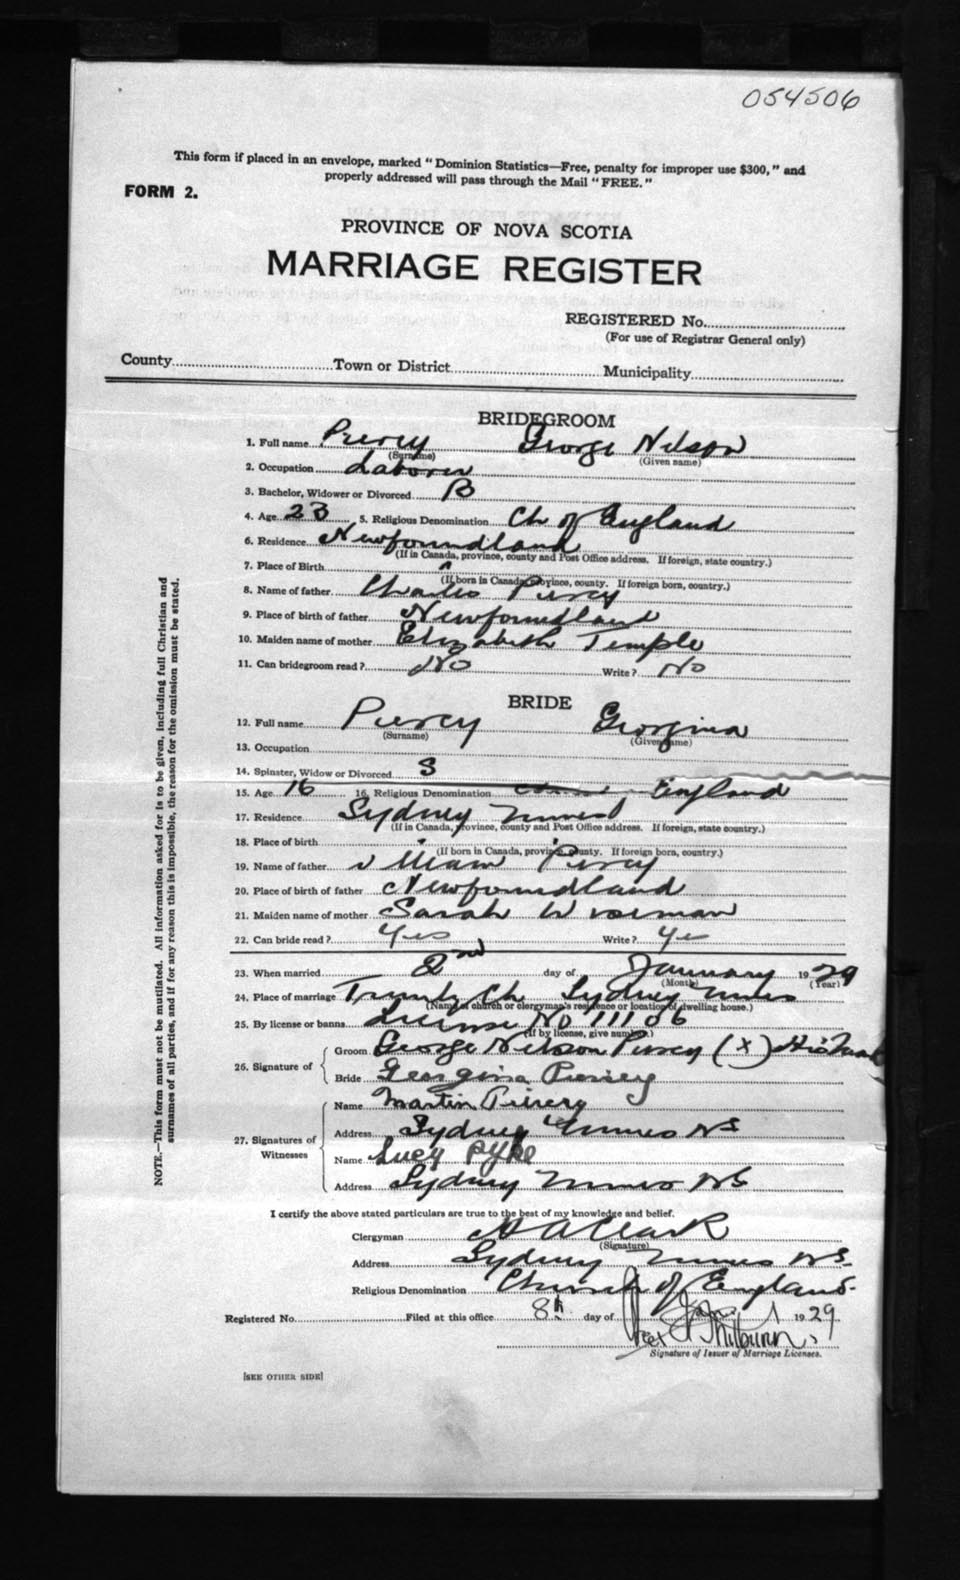 054506
This form if placed in an envelope, marked "Dominion Statistics—Free, penalty for improper use $300," and
properly addressed will pass through the Mail "FREE."
FORM 2.
PROVINCE OF NOVA SCOTIA
MARRIAGE REGISTER
REGISTERED No.
(For use of Registrar General only)
County Town or District Municipality
BRIDEGROOM
1. Full name Piercy George Nelson
(Surname) (Given name)
2. Occupation Laborer
3. Bachelor, Widower or Divorced B
4. Age 23 5. Religious Denomination Ch of England
6. Residence Newfoundland
(If in Canada, province, county and Post Office address. If foreign, state country.)
7. Place of Birth "
(If born in Canada, province, county. If foreign born, country.)
8. Name of father Charles Piercy
9. Place of birth of father Newfoundland
10. Maiden name of mother Elizabeth Temple
11. Can bridegroom read? No Write? No
BRIDE
12. Full name Piercy Georgina
(Surname) (Given name)
13. Occupation
14. Spinster, Widow or Divorced S
15. Age 16 16. Religious Denomination England
17. Residence Sydney Mines
(If in Canada, province, county and Post Office address. If foreign, state country.)
18. Place of birth "
(If born in Canada, province, county. If foreign born, country.)
19. Name of father William Piercy
20. Place of birth of father Newfoundland
21. Maiden name of mother Sarah
22. Can bride read? Yes Write? Ye
23. When married 2nd day of January 1929
(Month) (Year)
24. Place of marriage Trinity Ch Sydney Mines
(Name of church or clergyman's residence or location of dwelling house.)
25. By license or banns License No 11106
(If by license, give number.)
26. Signature of
Groom George Nelson Piercy (X) His Mark
Bride Georgina Piersey
27. Signatures of Witnesses
Name Martin Piercy
Address Sydney Mines NS
Name Lucy Pyke
Address Sydney Mines NS
I certify the above stated particulars are true to the best of my knowledge and belief.
Clergyman A A Clark
(Signature)
Address Sydney Mines NS.
Religious Denomination Church of England.
Registered No. Filed at this office 8th day of Jany 1929
Signature of Issuer of Marriage Licenses.
[SEE OTHER SIDE]
NOTE.—This form must not be mutilated. All information asked for is to be given, including full Christian and
surnames of all parties, and if for any reason this is impossible, the reason for the omission must be stated.